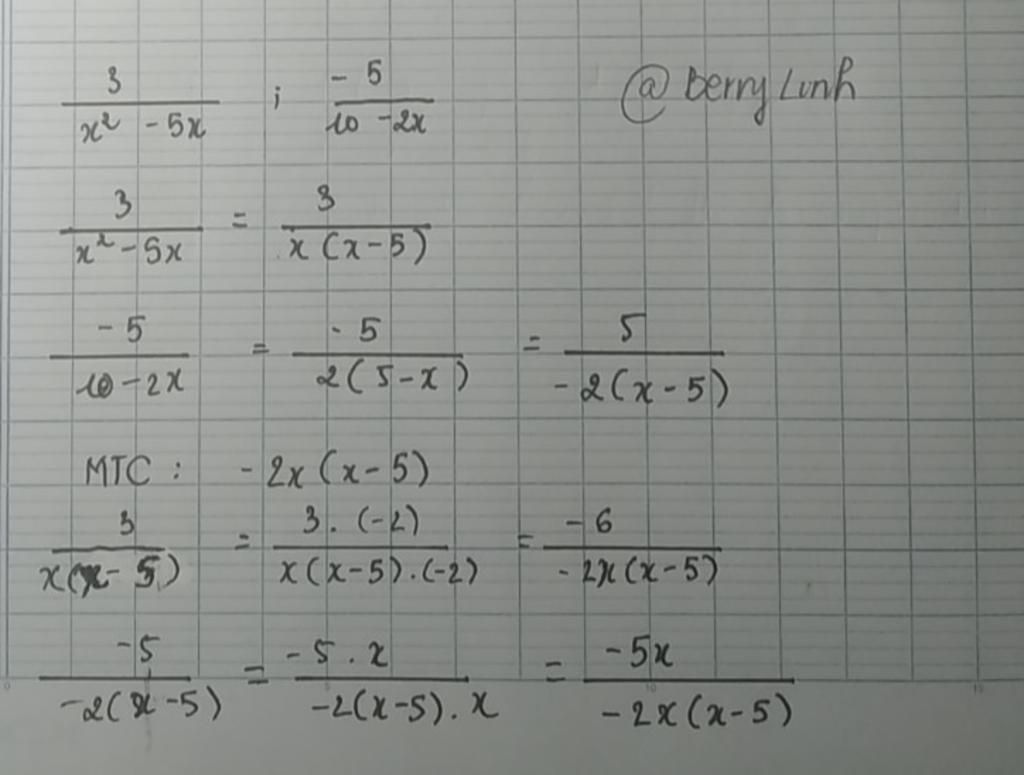 3/(x² - 5x) ; -5/(10 - 2x) @ Berry Linh
3/(x² - 5x) = 3/(x(x - 5))
-5/(10 - 2x) = -5/(2(5 - x)) = 5/(-2(x - 5))
MTC : -2x(x - 5)
3/(x(x - 5)) = 3 . (-2)/(x(x - 5) . (-2)) = -6/(-2x(x - 5))
-5/(-2(x - 5)) = -5 . x/(-2(x - 5) . x) = -5x/(-2x(x - 5))